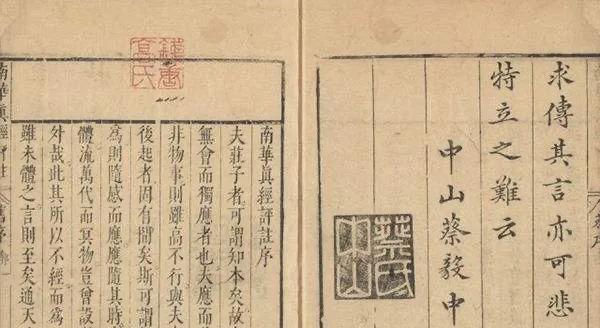 求傳其言亦可悲
特立之難云
中山蔡毅中
南華眞經評註序
夫莊子者可謂知本矣故
無會而獨應者也夫應而
非物事則雖高不行與夫
後起者固有間矣斯可謂
爲則隨感而應應隨其時
體流萬代而冥物豈曾設
外哉此其所以不經而爲
雖未體之言則至矣通天
南華眞經評註